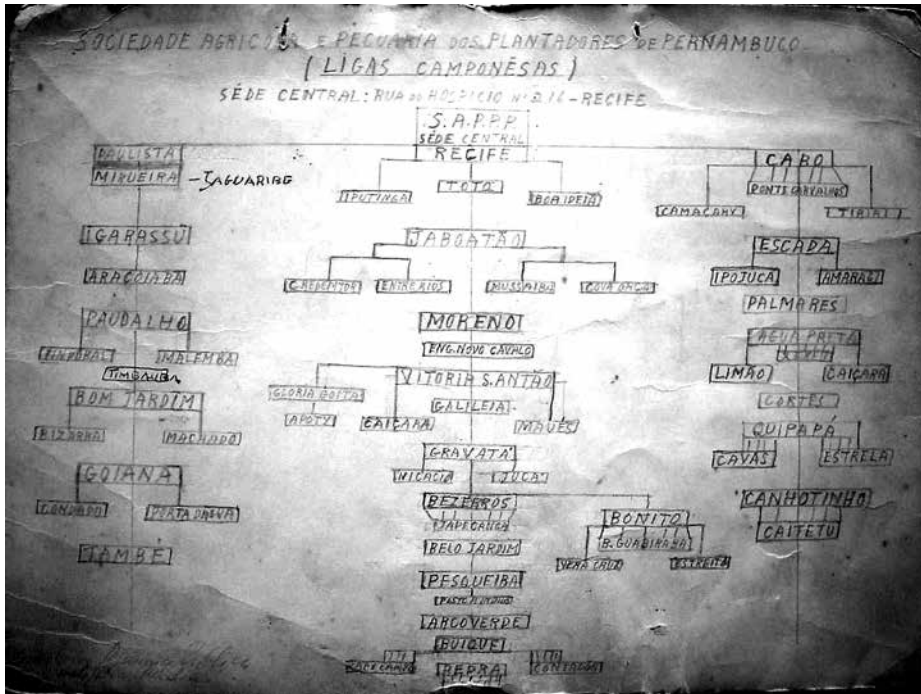 SOCIEDADE AGRICOLA E PECUARIA DOS PLANTADORES DE PERNAMBUCO
(LIGAS CAMPONÊSAS)
SÉDE CENTRAL: RUA DO HOSPICIO Nº 216 - RECIFE
S.A.P.P.P.
SÉDE CENTRAL
RECIFE
IPUTINGA
TOTÓ
BOA IDEIA
PAULISTA
MIRUEIRA - JAGUARIBE
IGARASSÚ
ARAÇOIABA
PAUDALHO
MALEMBA
TIMBAUBA
BOM JARDIM
BIZARRA
MACHADO
GOIANA
CONDADO
PORTA DAGUA
TAMBÉ
JABOATÃO
C. REDENTOR
ENTRE RIOS
MUSSAIBA
COVA ONÇA
MORENO
ENG. NOVO CAVALO
VITORIA S. ANTÃO
GLORIA GOITA
APOTY
CAIÇARA
GALILEIA
MAUÉS
GRAVATÁ
NICACIO
JUCÁ
BEZERROS
JAPECANGA
BONITO
B. GUABIRABA
VERA CRUZ
ESTREITO
BELO JARDIM
PESQUEIRA
ARCOVERDE
BUIQUE
PEDRA
CABO
PONTE CARVALHOS
CAMAÇARY
TIRIRI
ESCADA
IPOJUCA
AMARAGI
PALMARES
AGUA PRETA
LIMÃO
CAIÇARA
CORTÊS
QUIPAPÁ
CAVAS
ESTRELA
CANHOTINHO
CAITETU